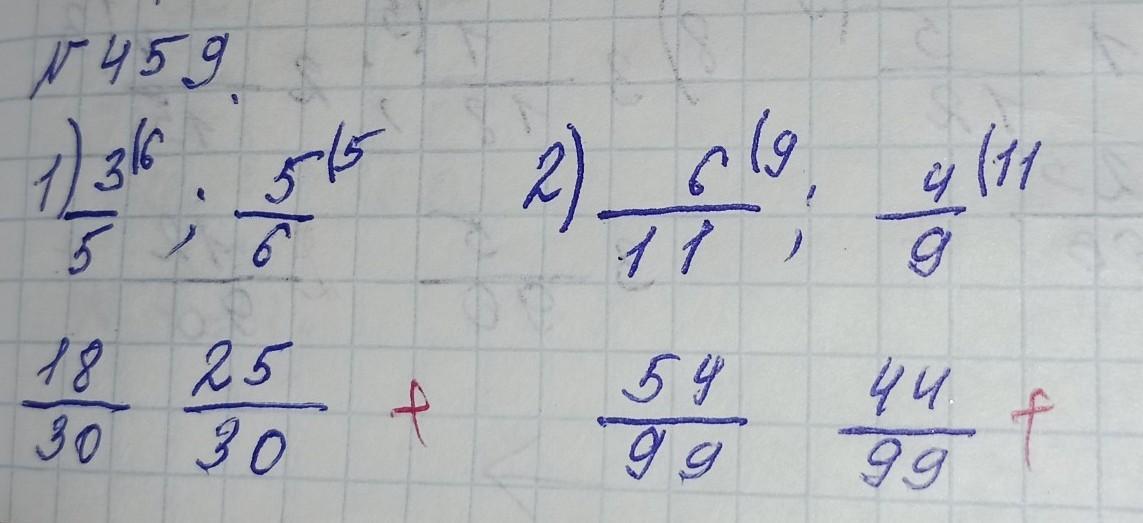 № 459.
1) 3(6/5 ; 5(5/6 2) 6(9/11 ; 4(11/9
18/30 25/30 + 54/99 44/99 +